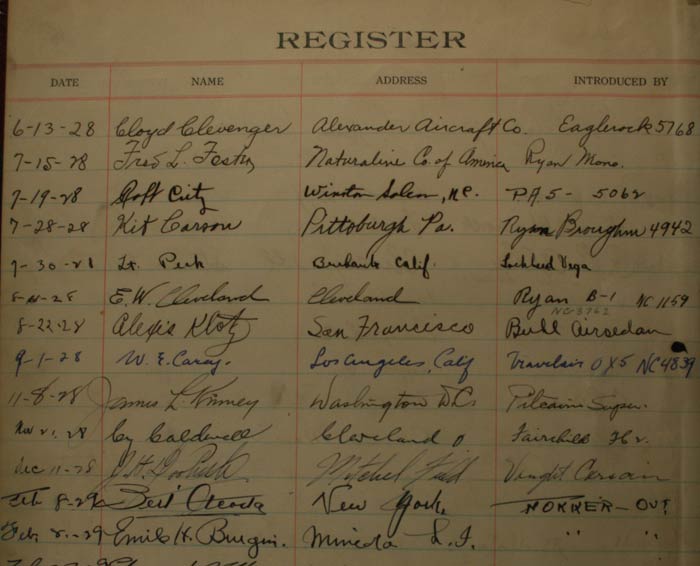 REGISTER
DATE NAME ADDRESS INTRODUCED BY
6-13-28 Cloyd Clevenger Alexander Aircraft Co. Eaglerock 5768
7-15-28 Fred L. Naturaline Co. of America Ryan Mono.
7-19-28 City Winston Salem, N.C. PA5 - 5062
7-28-28 Kit Carson Pittsburgh Pa. Ryan Brougham 4942
7-30-28 Lt. Peck Burbank Calif. Lockheed Vega
E.W. Cleveland Cleveland Ryan B-1 NC 1159
NC 3762
8-22-28 Alexis Klotz San Francisco Bull Airsedan
9-1-28 W. E. Los Angeles, Calif Travelair OX5 NC4839
11-8-28 James L. Kinney Washington D.C. Pitcairn Super.
Nov 21, 28 Cy Caldwell Cleveland O Fairchild
Dec 11-28 J.H. Doolittle Mitchel Field Vought Corsair
Feb 8-29 Bert Acosta New York - OUT
Feb -29 Emil H. Burgin. Mineola L.I. " "